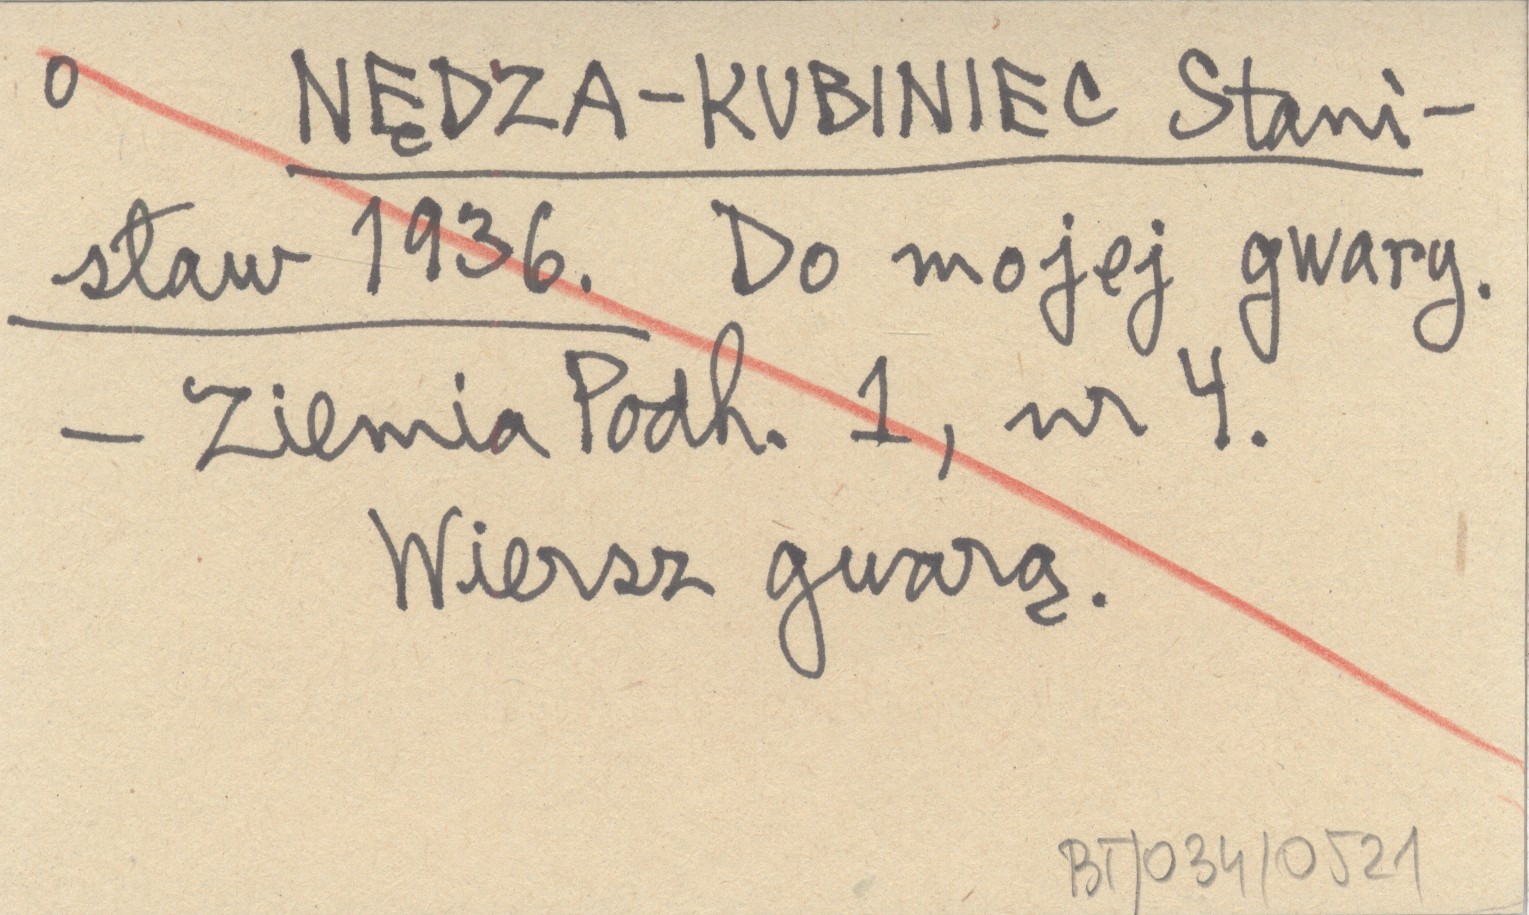 0 NĘDZA-KUBINIEC Stani-
sław 1936. Do mojej gwary.
- Ziemia Podh. 1, nr 4.
Wiersz gwarą.
BT/034/0521